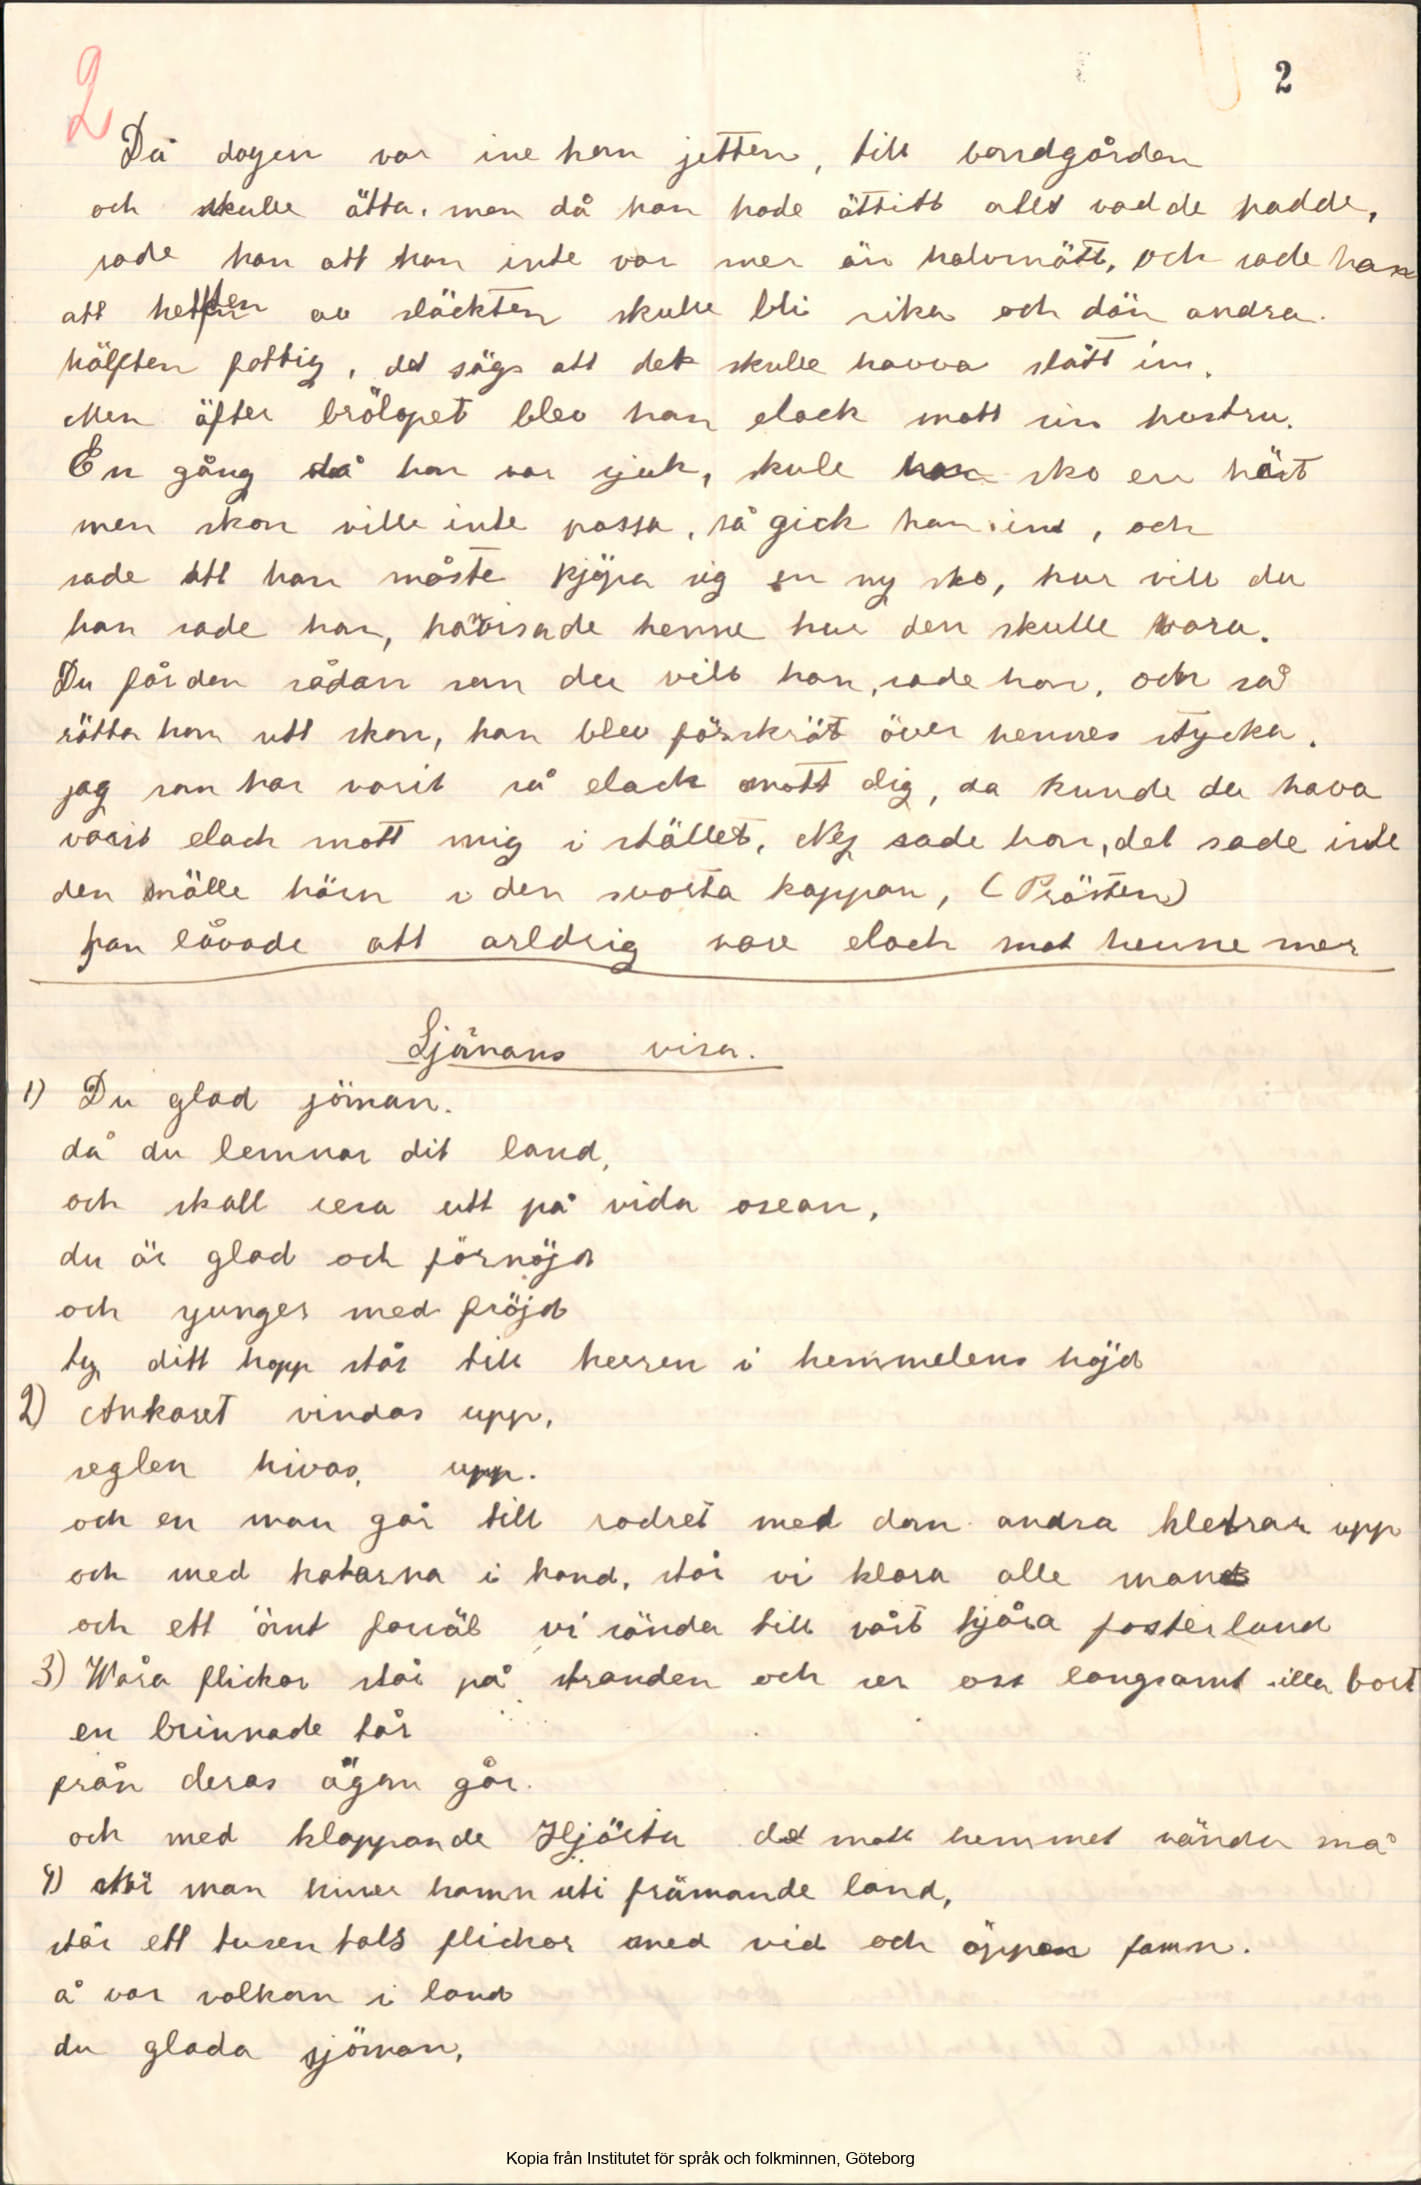 2
2
Då dagen var ine kom jetten, till bondgården
och skulle ätta, men då han hade ättitt allt vad de hadde,
sade han att han inte var mer än halvmätt, och sade han
att helften av släckten skulle bli rika och dän andra
hälften fattig, det sägs att det skulle havva slått in.
Men äfter brölopet blev han elack mott sin hustru.
En gång då han var sjuk, skule han sko en häst
men skon ville inte passa, så gick han in, och
sade att han måste kjöpa sig en ny sko, hur vill du
han sade hon, havisade henne hur den skulle vara.
Du får den sådan som du vill han, sade hon, och så
rätta hon utt skon, han blev förskrät över hennes stycka.
jag som har varit så elack mott dig, da kunde du hava
varit elack mott mig i stället. Nej sade hon, det sade inte
den snälle härn i den svarta kappan, (Prästen)
han låvade att arldrig vare elack mot henne mer
Sjömans visa.
1) Du glad jöman.
då du lemnar dit land,
och skall resa utt på vida osean,
du är glad och förnöjd
och sjunger med fröjd
ty ditt hopp står till herren i hemmelens höjd
2) Ankaret vindas upp,
seglen hivas, upp.
och en man går till rodret med dom andra kletrar upp
och med hatarna i hand, står vi klara alle mand
och ett ömt farväl vi sända till vårt kjära fosterland
3) Wåra flickor står på stranden och ser oss langsamt illa bort
en brinnade tår
från deras ögon går.
och med klappande Hjärta det mott hemmet vända må
4) När man hiner hamn uti främande land,
står ett tusen tals flickor med vid och öppen famn.
å var valkom i land
du glada sjöman,
Kopia från Institutet för språk och folkminnen, Göteborg